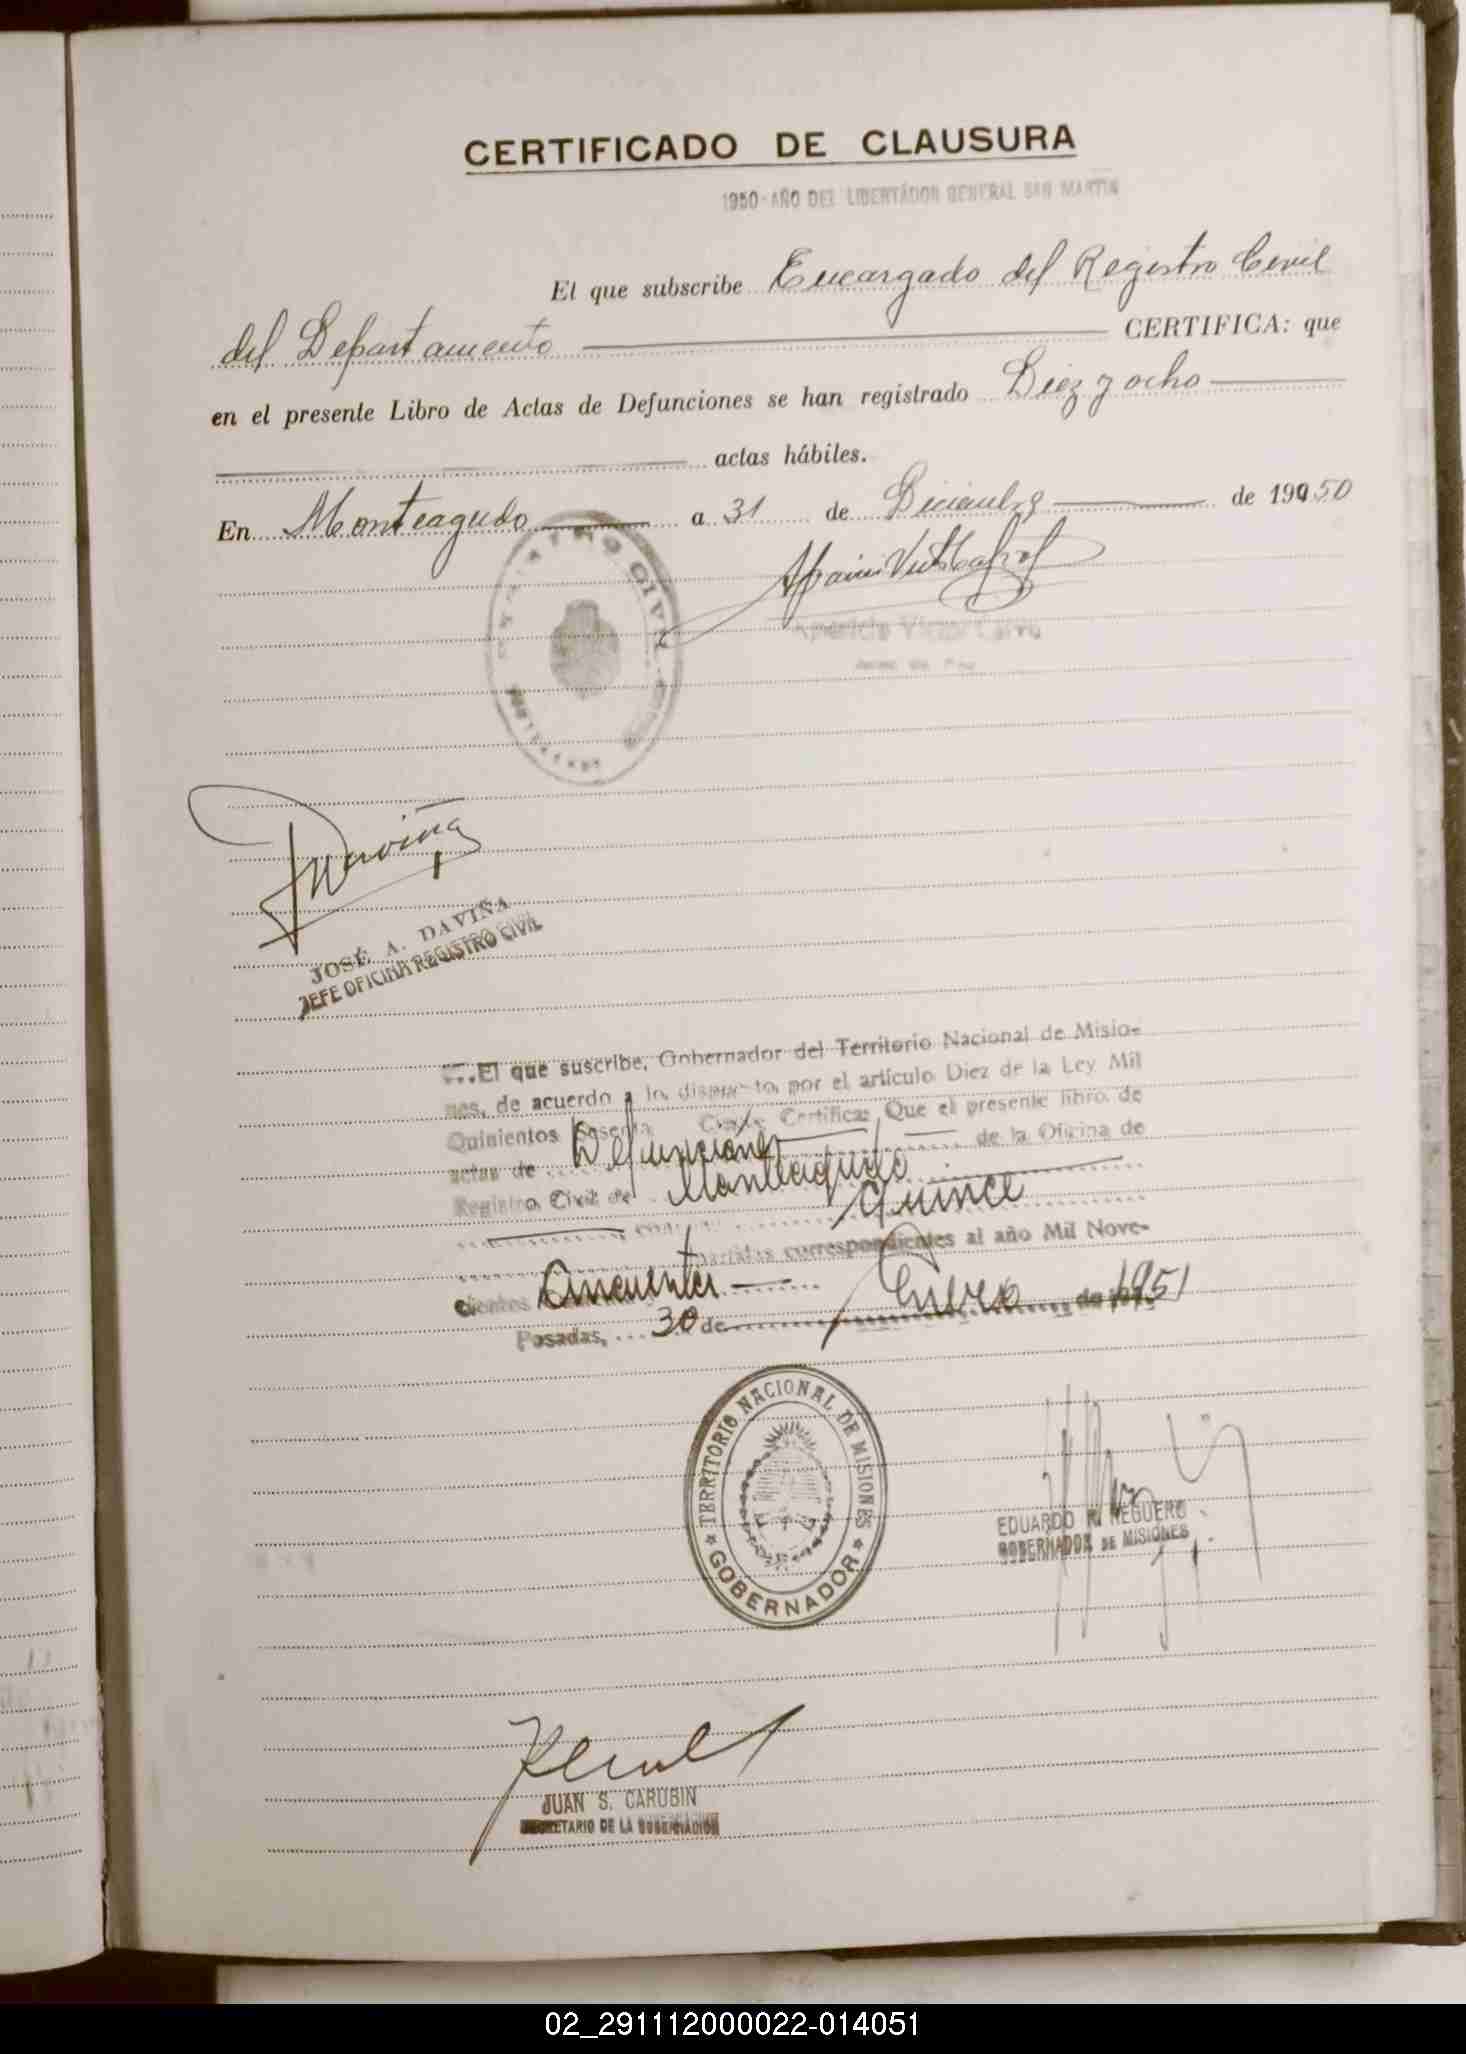 CERTIFICADO DE CLAUSURA
1950-AÑO DEL LIBERTADOR GENERAL SAN MARTIN
El que subscribe Encargado del Registro Civil
del Departamento CERTIFICA: que
en el presente Libro de Actas de Defunciones se han registrado Diez y ocho
actas hábiles.
En Monteagudo a 31 de Diciembre de 19450
REGISTRO CIVIL
Aparicio Victor
Daviña
JOSÉ A. DAVIÑA
JEFE OFICINA REGISTRO CIVIL
...El que suscribe, Gobernador del Territorio Nacional de Misio-
nes, de acuerdo a lo dispuesto por el artículo Diez de la Ley Mil
Quinientos Sesenta Certifica: Que el presente libro de
actas de Defunciones de la Oficina de
Registro Civil de Monteagudo
Quince
partidas correspondientes al año Mil Nove-
cientos Cincuenta
Posadas, 30 de Enero de 1951
TERRITORIO NACIONAL DE MISIONES
GOBERNADOR
EDUARDO R. REGUERO
GOBERNADOR DE MISIONES
JUAN S. CARUBIN
SECRETARIO DE LA GOBERNACIÓN
02_291112000022-014051